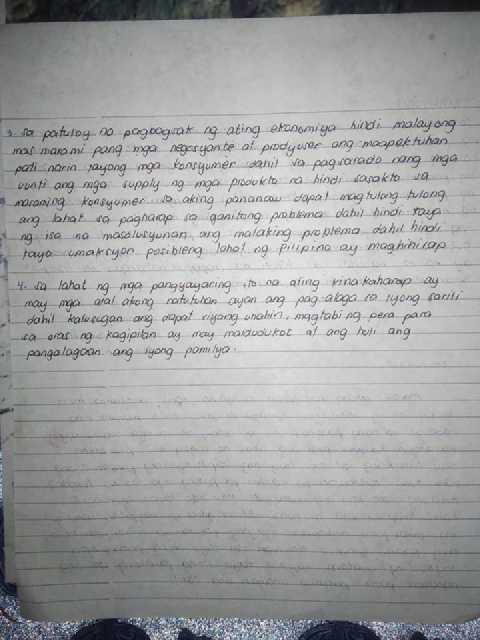 3. Sa patuloy na pagbagsak ng ating ekonomiya hindi malayong
mas marami pang mga negosyante at prodyuser ang maapektuhan
pati narin tayong mga konsyumer dahil sa pagsasarado nang mga
unti ang mga supply ng mga produkto na hindi sasakto sa
maraming konsyumer. sa aking pananaw dapat magtulong tulong
ang lahat sa pagharap sa ganitong problema dahil hindi kaya
ng isa na masolusyunan ang malaking problema dahil hindi
tayo umaksyon posibleng lahat ng pilipino ay maghihirap
4. Sa lahat ng mga pangyayaring ito na ating kinakaharap ay
may mga aral akong natutunan ayan ang pag-alaga sa iyong sarili
dahil kalusugan ang dapat niyong unahin, magtabi ng pera para
sa oras ng kagipitan ay may madudukot at ang huli ang
pangalagaan ang iyong pamilya.